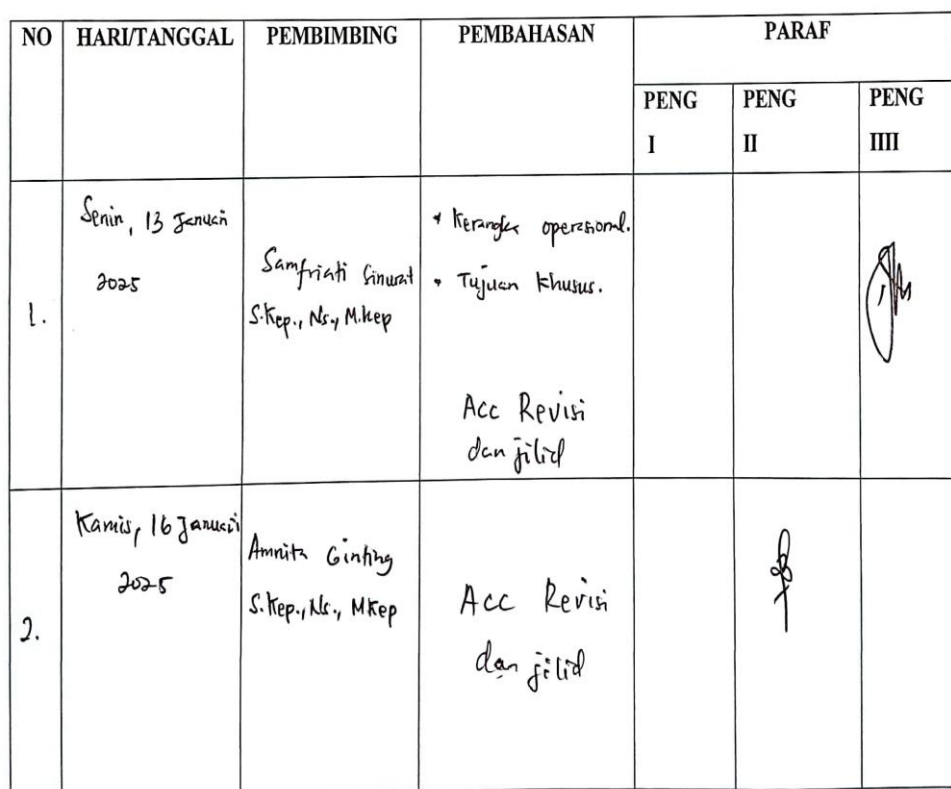 NO HARI/TANGGAL PEMBIMBING PEMBAHASAN PARAF
PENG I PENG II PENG IIII
1.
Senin, 13 Januari
2025
Samfriati Sinurat
S.Kep., Ns., M.Kep
• Kerangka operasional.
• Tujuan Khusus.
Acc Revisi
dan jilid
2.
Kamis, 16 Januari
2025
Amnita Ginting
S.Kep., Ns., MKep
Acc Revisi
dan jilid